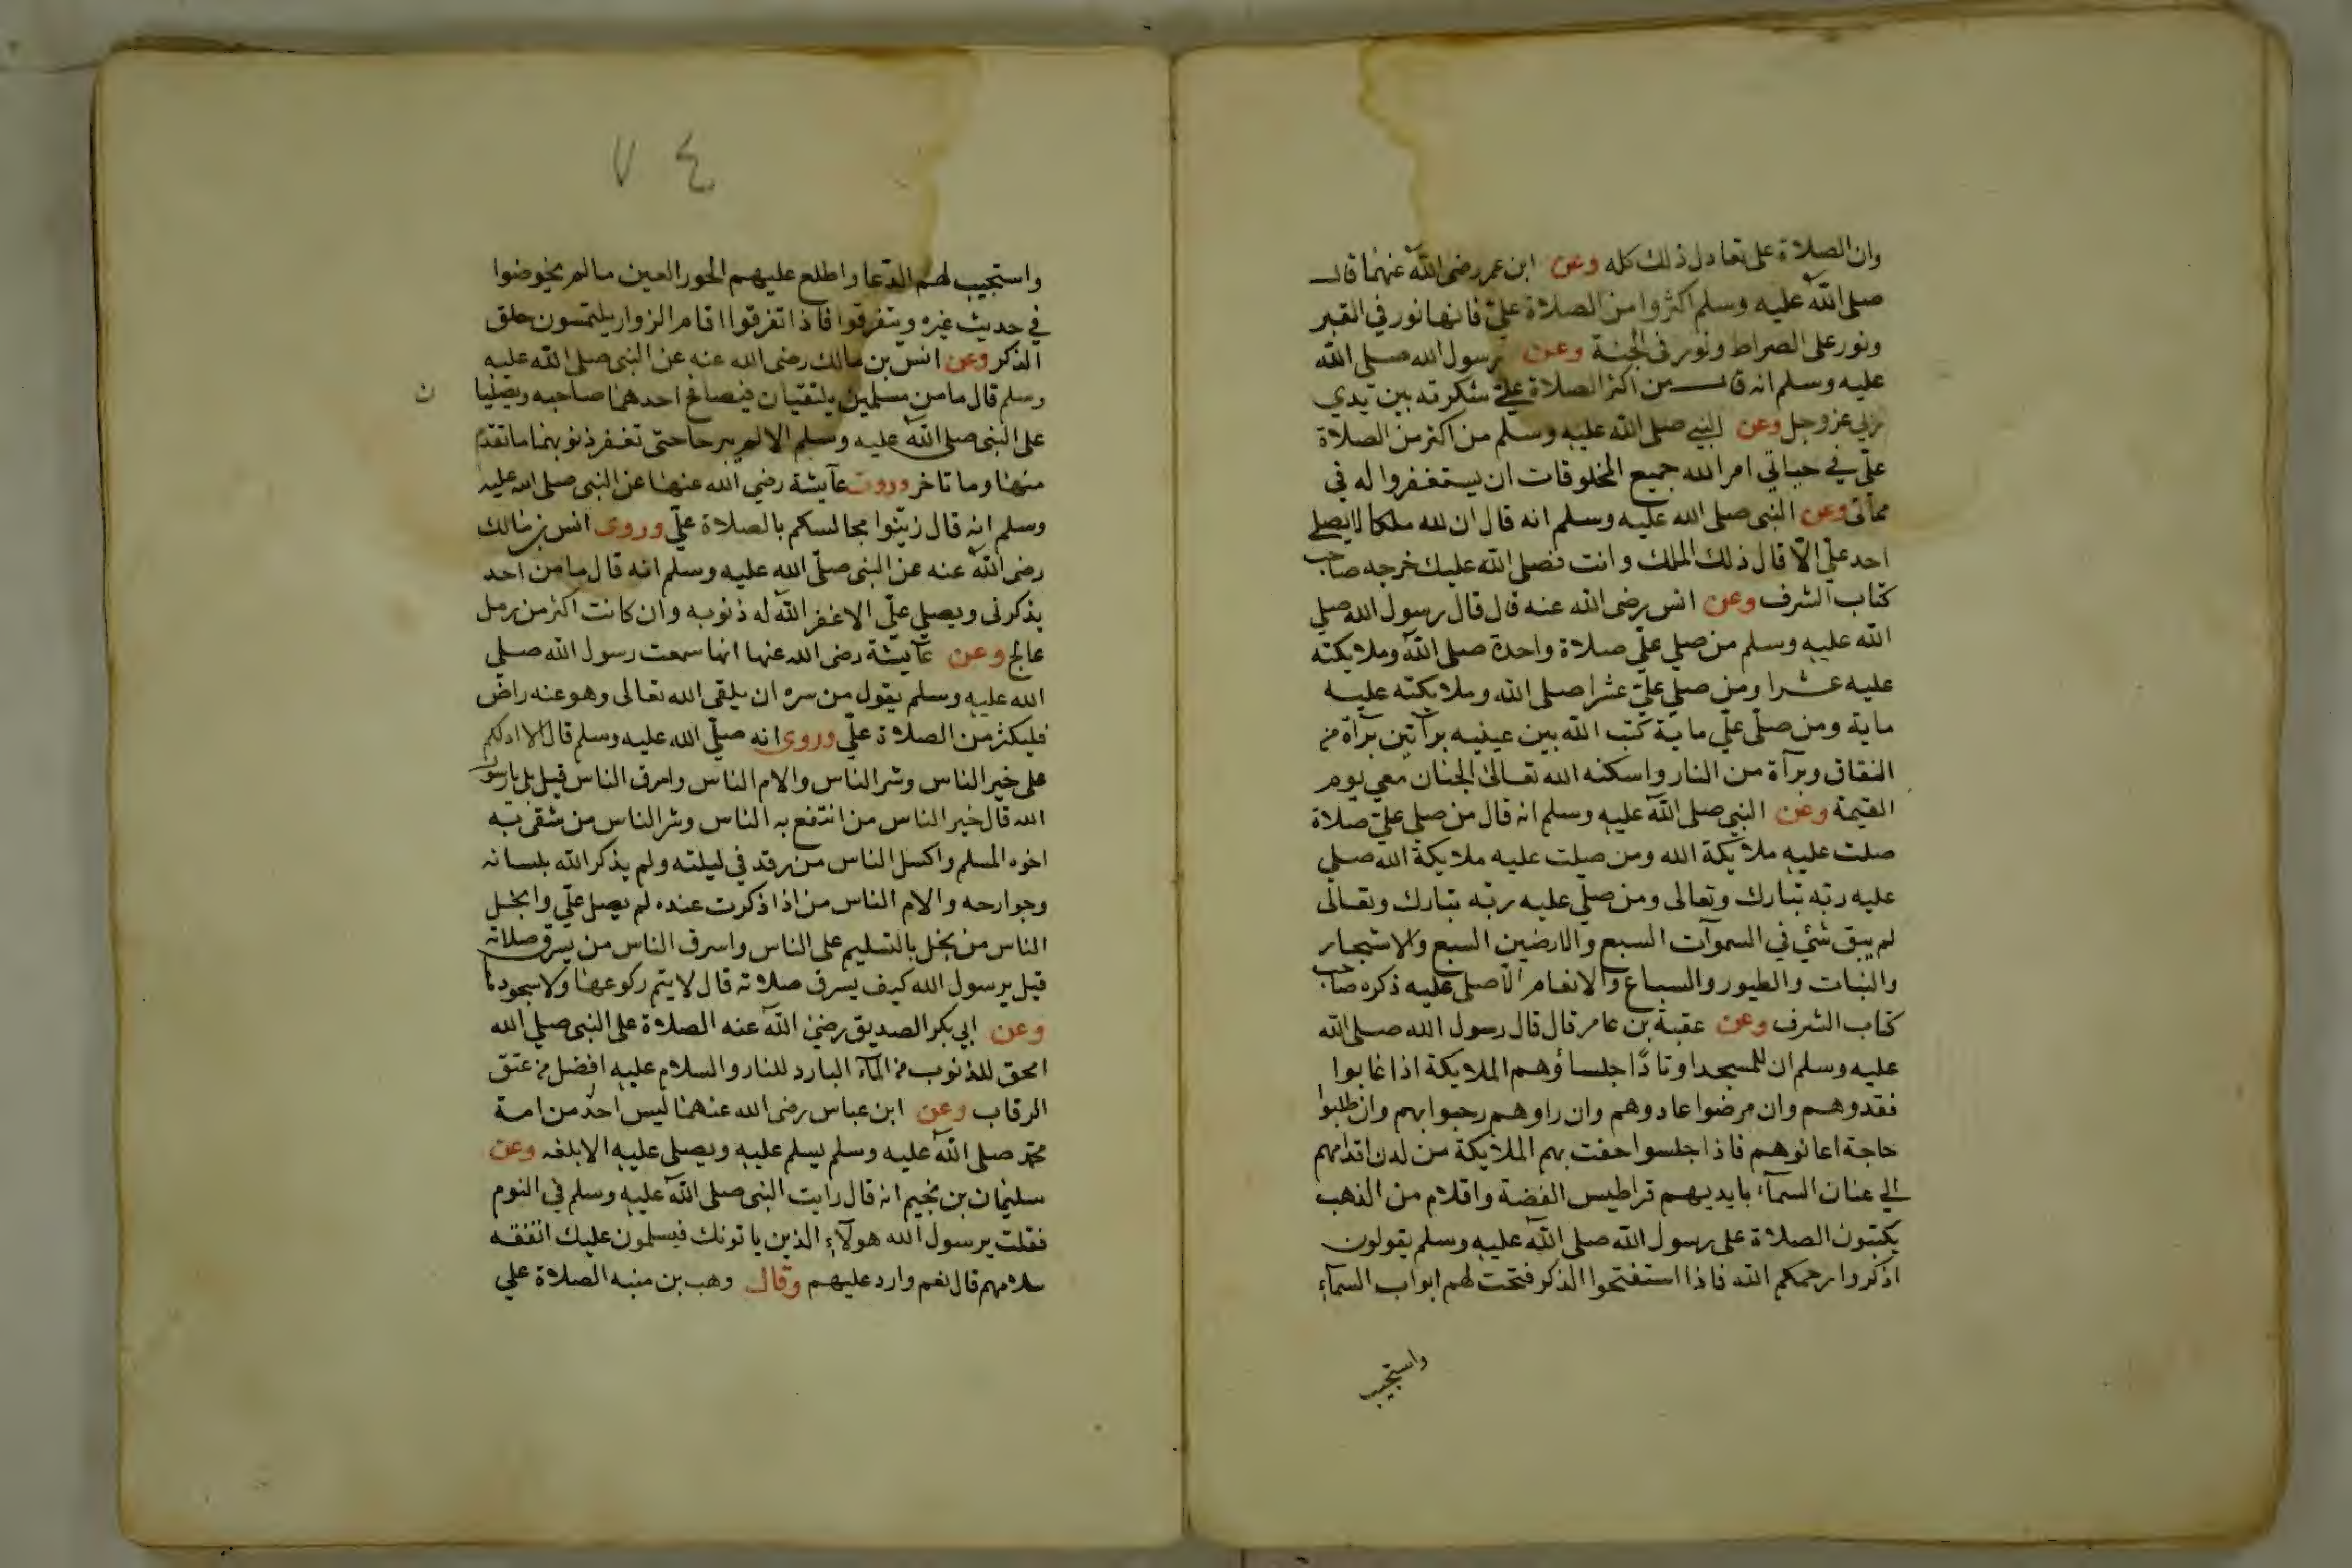 وان الصلاة على تعادل ذلك كله وعن ابن عمر رضى الله عنهما قال
صلى الله عليه وسلم اكثروا من الصلاة علىّ فانها نور في القبر
ونور على الصراط ونور فى الجنة وعن رسول الله صلى الله
عليه وسلم انه قال من اكثر الصلاة علىّ شكرته بين يدي
ربي عز وجل وعن النبي صلى الله عليه وسلم من اكثر من الصلاة
علىّ في حياتي امر الله جميع المخلوقات ان يستغفروا له في
مماتى وعن النبى صلى الله عليه وسلم انه قال ان لله ملكا لا يصلي
احد علىّ الا قال ذلك الملك وانت فصلى الله عليك خرجه صاحب
كتاب الشرف وعن انس رضى الله عنه قال قال رسول الله صلي
الله عليه وسلم من صلي علىّ صلاة واحدة صلى الله وملايكته
عليه عشرا ومن صلي علىّ عشرا صلى الله وملايكته عليه
ماية ومن صلى علىّ ماية كتب الله بين عينيه برآتين برآة من
النفاق وبرآة من النار واسكنه الله تعالى الجنان معي يوم
القيمة وعن النبى صلى الله عليه وسلم انه قال من صلي علىّ صلاة
صلت عليه ملايكة الله ومن صلت عليه ملايكة الله صلي
عليه ربّه تبارك وتعالى ومن صلّي عليه ربّه تبارك وتعالى
لم يبق شئ في السموآت السبع والارضين السبع والاشجار
والنبات والطيور والسباع والانعام الا صلى عليه ذكره صاحب
كتاب الشرف وعن عقبة بن عامر قال قال رسول الله صلى الله
عليه وسلم ان للمسجد اوتادًا جلساؤهم الملايكة اذا غابوا
فقدوهم وان مرضوا عادوهم وان راوهم رحبوا بهم وان طلبوا
حاجة اعانوهم فاذا جلسوا حفت بهم الملايكة من لدن اقدامهم
الي عنان السمآء بايديهم قراطيس الفضة واقلام من الذهب
يكتبون الصلاة على رسول الله صلى الله عليه وسلم يقولون
اذكروا رحمكم الله فاذا استفتحوا الذكر فتحت لهم ابواب السمآء
واستجيب
٧٤
واستجيب لهم الدّعا واطلع عليهم الحور العين مالم يخوضوا
في حديث غيره ويتفرقوا فاذا تفرقوا اقام الزوار يلتمسون حلق
الذكر وعن انس بن مالك رضى الله عنه عن النبى صلى الله عليه
وسلم قال ما من مسلمين يلتقيان فيصافح احدهما صاحبه ويصليا
ن
على النبى صلى الله عليه وسلم الا لم يبرحا حتى تغفر ذنوبهما ما تقدم
منها وما تاخر وروت عآيشة رضي الله عنها عن النبى صلى الله عليه
وسلم انه قال زيّنوا مجالسكم بالصلاة علىّ وروى انس بن مالك
رضى الله عنه عن النبى صلّى الله عليه وسلم انه قال ما من احد
يذكرنى ويصلي علىّ الا غفر الله له ذنوبه وان كانت اكثر من رمل
عالج وعن عآيشة رضى الله عنها انها سمعت رسول الله صلي
الله عليه وسلم يقول من سره ان يلقى الله تعالى وهو عنه راض
فليكثر من الصلاة علىّ وروى انه صلّي الله عليه وسلم قال الا ادلكم
على خير الناس وشر الناس والام الناس واسرق الناس قيل بل يارسول
الله قال خير الناس من انتفع به الناس وشر الناس من شقى به
اخوه المسلم واكسل الناس من رقد في ليلته ولم يذكر الله بلسانه
وجوارحه والام الناس من اذا ذكرت عنده لم يصل علىّ وابخل
الناس من بخل بالتسليم على الناس واسرق الناس من يسرق صلاته
قيل يرسول الله كيف يسرق صلاته قال لا يتم ركوعها ولا سجودها
وعن ابي بكر الصديق رضى الله عنه الصلاة على النبى صلي الله
امحق للذنوب من المآء البارد للنار والسلام عليه افضل من عتق
الرقاب وعن ابن عباس رضى الله عنهما ليس احد من امة
محمّد صلى الله عليه وسلم يسلم عليه ويصلى عليه الا بلغه وعن
سليمان بن نجيم انه قال رايت النبى صلى الله عليه وسلم في النوم
فقلت يرسول الله هولآء الذين ياتونك فيسلمون عليك اتفقه
سلامهم قال نعم وارد عليهم وقال وهب بن منبه الصلاة علي